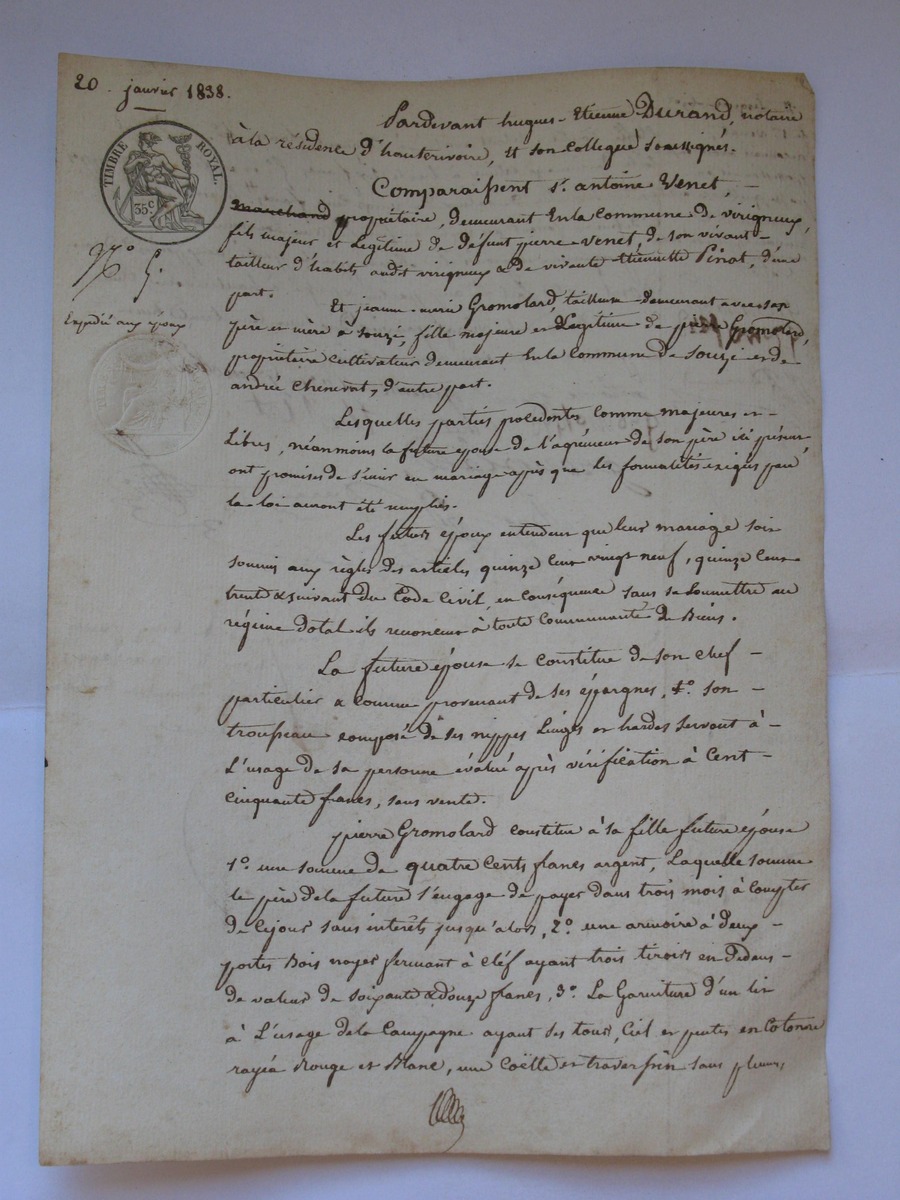 20. janvier 1838.
Pardevant hugues-Etienne Durand, notaire
à la résidence d'hauterivoire, et son Collegue soussignés.
TIMBRE ROYAL.
35c
Comparaissent sr. antoine Venet,
marchand propriétaire, demeurant En la commune de virigneux,
fils majeur et Legitime de défunt pierre Venet, de son vivant
tailleur d'habits audit virigneux & de vivante Etiennette Pinot, d'une
part.
Et jeanne-marie Gromolard, tailleuse demeurant avec ses
Expédié aux époux
père et mère à souzi, fille majeure et Legitime de pierre Gromolard,
propriétaire cultivateur demeurant En la Commune de souzi et de
andrée Chenevat, d'autre part.
Lesquelles parties procedentes comme majeures et
Libres, néanmoins la future epouse de l'agrément de son père ici présent
ont promises de s'unir en mariage après que les formalités exigées par
la loi auront été remplies.
Les futurs époux entendent que leur mariage soit
soumis aux règles des articles quinze cent vingt neuf, quinze cent
trente & suivant du Code Civil, en conséquence sans se soumettre au
régime dotal ils renoncent à toute Communauté de Biens.
La future épouse se constitue de son chef
particulier & comme provenant de ses épargnes, 1o. son
trousseau composé de ses nippes Linges et hardes servant à
L'usage de sa personne évalué après vérification à Cent
cinquante francs, sans vente.
pierre Gromolard constitue à sa fille future épouse
1o. une somme de quatre Cents francs argent, Laquelle somme
le père de la future s'engage de payer dans trois mois à Compter
de Ce jour sans intérêts jusqu'alors, 2o. une armoire à deux
portes Bois noyer fermant à cléf ayant trois tiroirs en Dedans
de valeur de soixante & douze francs, 3o. La Garniture d'un lit
à L'usage de la Campagne ayant ses tour, Ciel et pentes en Cotonne
rayéa Rouge et Blanc, une Coëtte et traversin sans plumes,